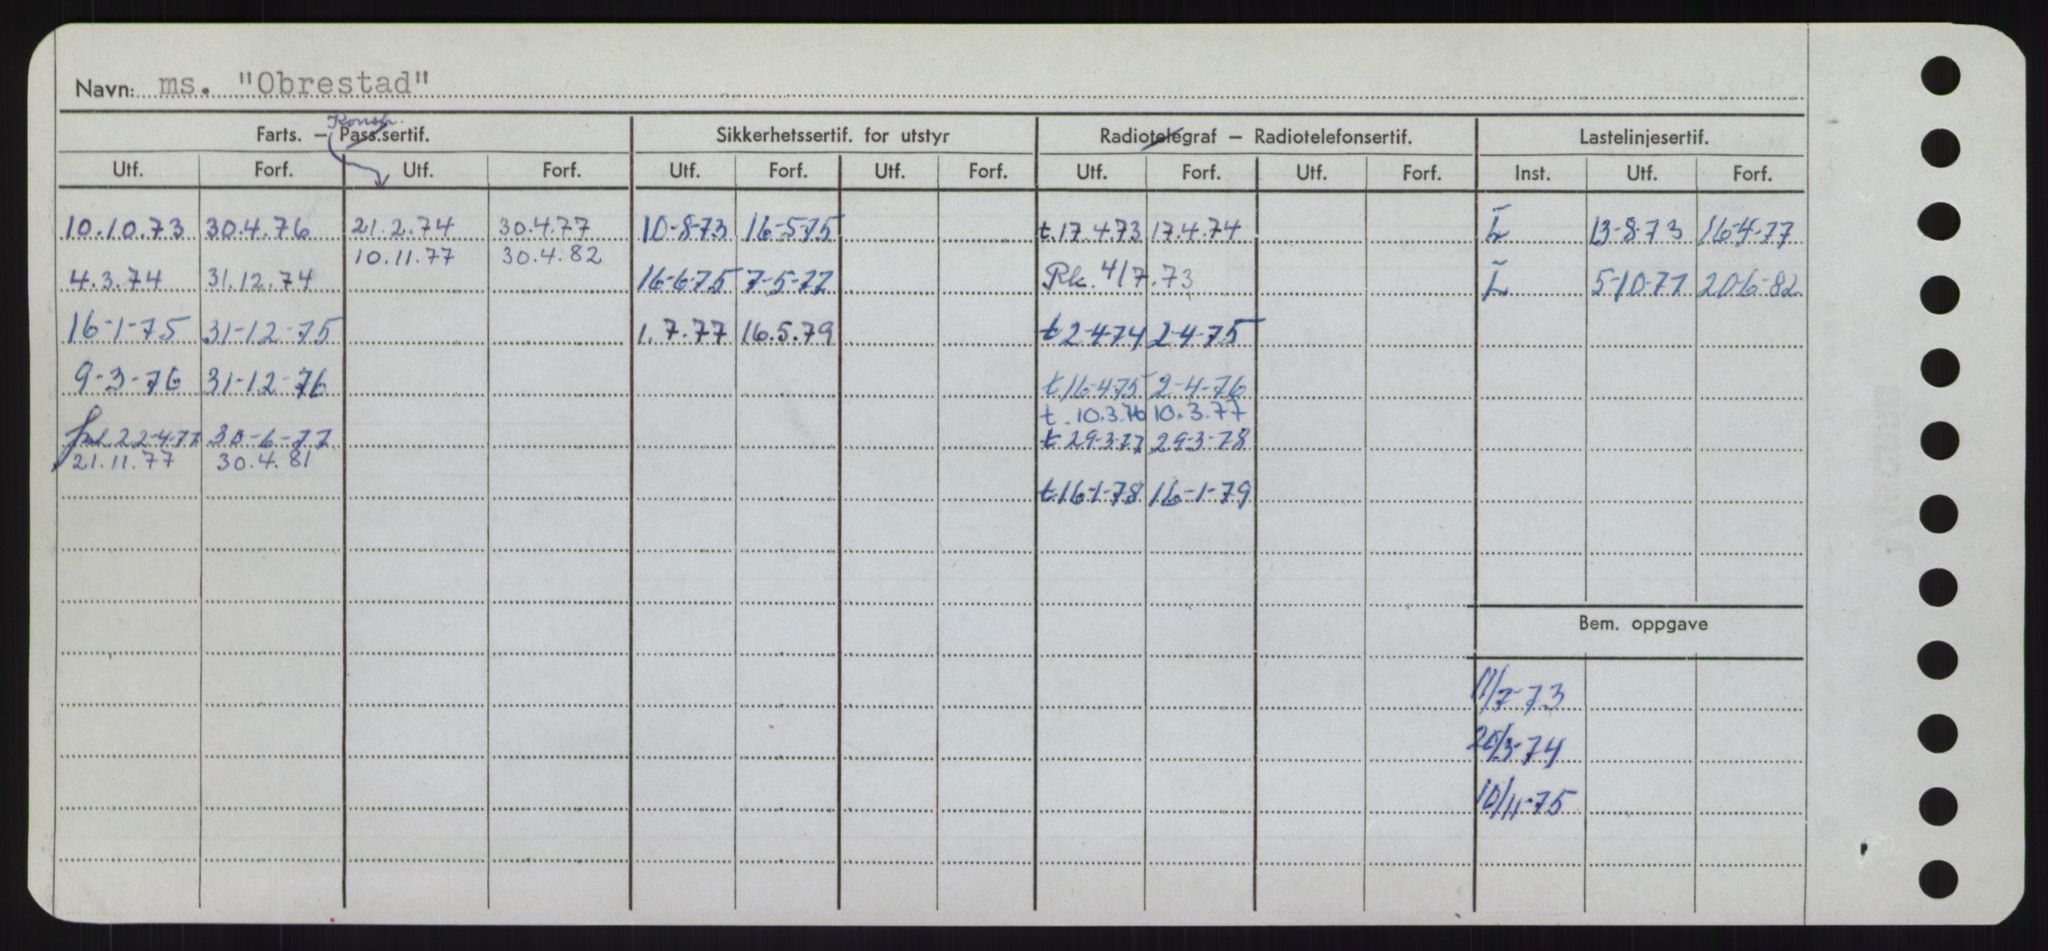 Navn: ms. "Obrestad"
Konstr.
Farts. — Pass.sertif. Sikkerhetssertif. for utstyr Radiotelegraf — Radiotelefonsertif. Lastelinjesertif.
Utf. Forf. Utf. Forf. Utf. Forf. Utf. Forf. Utf. Forf. Utf. Forf. Inst. Utf. Forf.
10.10.73 30.4.76 21.2.74 30.4.77 10-8-73 16-5-75 t.17.4.73 17.4.74 Ł 13-8-73 16-4-77
10.11.77 30.4.82
4.3.74 31.12.74 16-6-75 7-5-77 Rk. 4/7.73 Ł 5-10-77 20-6-82
16-1-75 31-12-75 1.7.77 16.5.79 t 2-4-74 2-4-75
9-3-76 31-12-76 t 16-4-75 2-4-76
t. 10.3.76 10.3.77
22-4-77 30-6-77 t 29-3-77 29-3-78
21.11.77 30.4.81
t 16-1-78 16-1-79
Bem. oppgave
11/7-73
20/3-74
10/11-75